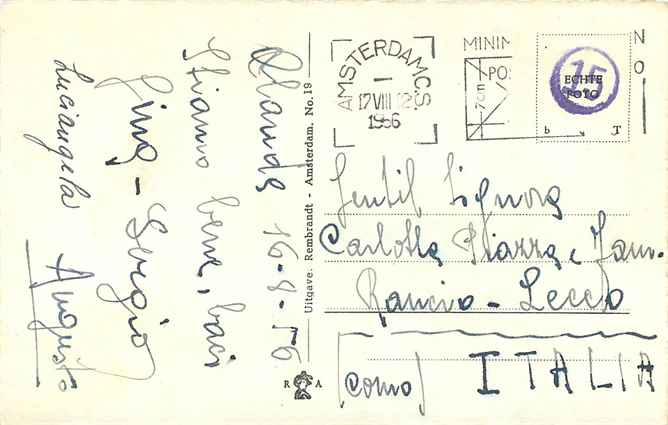 Olanda 16-8-56
Stiamo bene, baci
Gina - Sergio
Luciangela
Augusto
Uitgave. Rembrandt - Amsterdam. No. 19
R A
AMSTERDAM C.S
17 VIII 12
1956
MINIM
PO
N
O
15
ECHTE
FOTO
b T
Gentil Signora
Carlotta Piazza e Fam.
Rancio - Lecco
(Como)
ITALIA